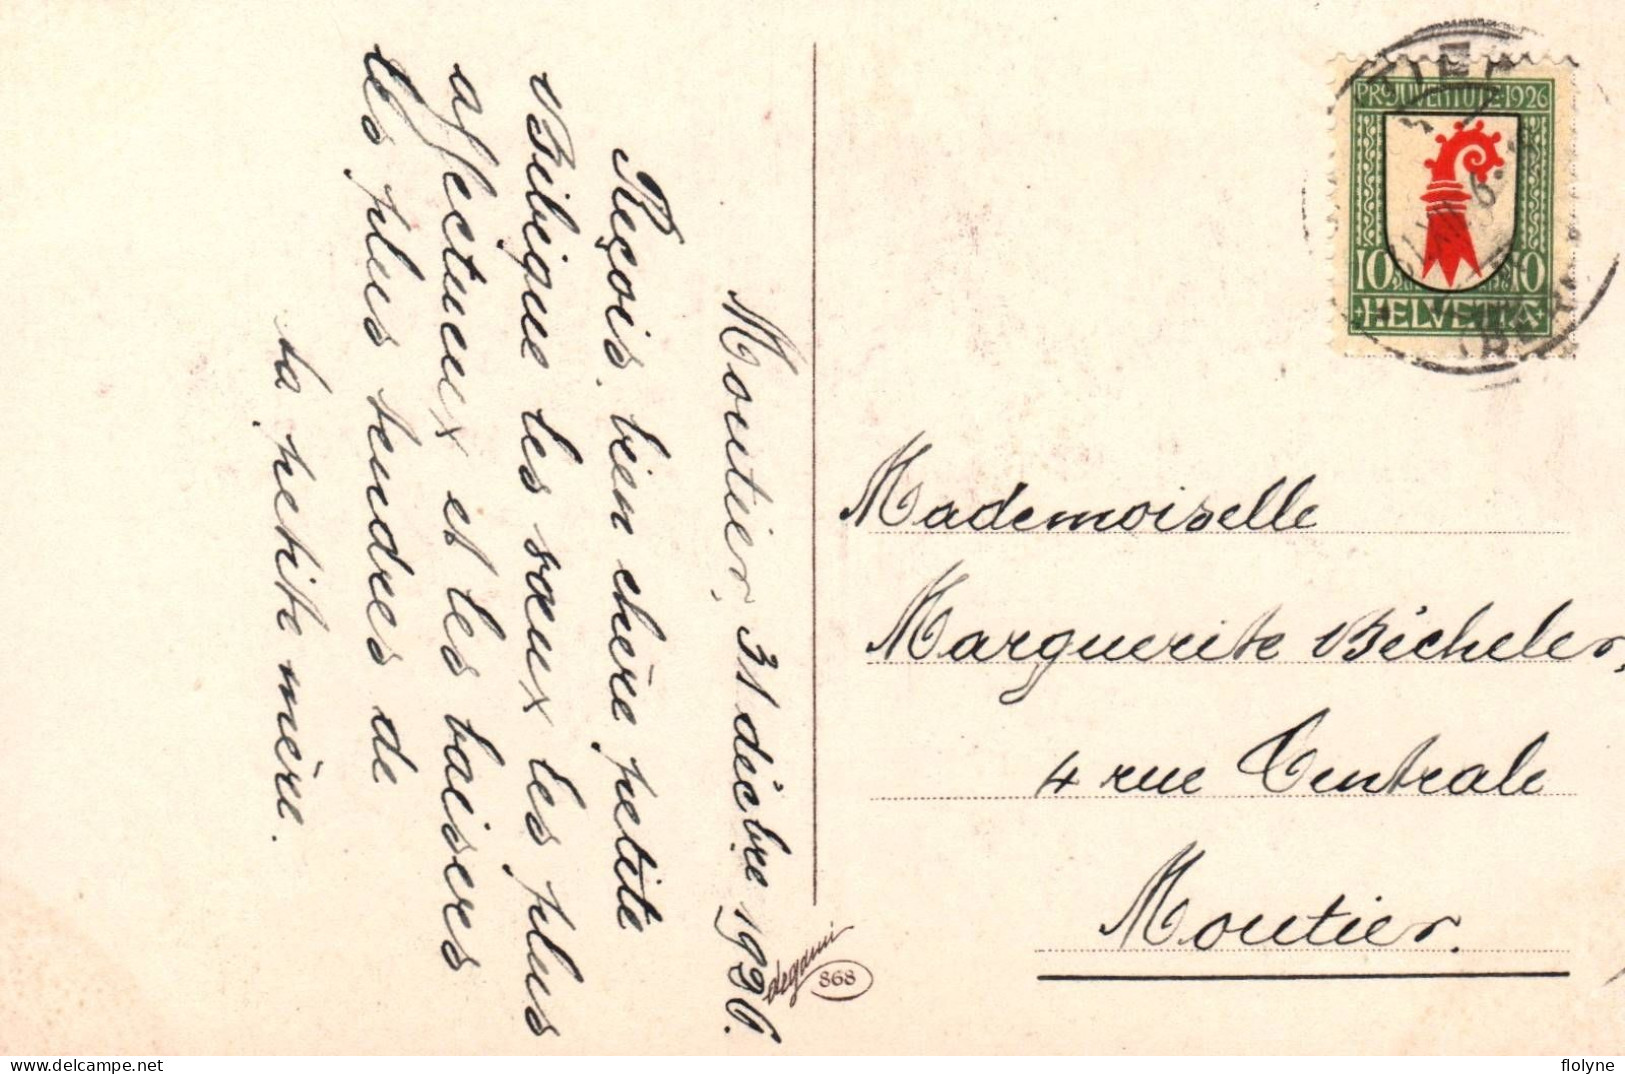 Moutier, 31 décbre 1926.
Reçois, bien chère petite
Bibique les vœux les plus
affectueux et les baisers
les plus tendres de
ta petite mère.
PRO JUVENTUTE·1926
10 10
HELVETIA
Mademoiselle
Marguerite Bécheler,
4 rue Centrale
Moutier.
degami
868
delcampe.net
flolyne